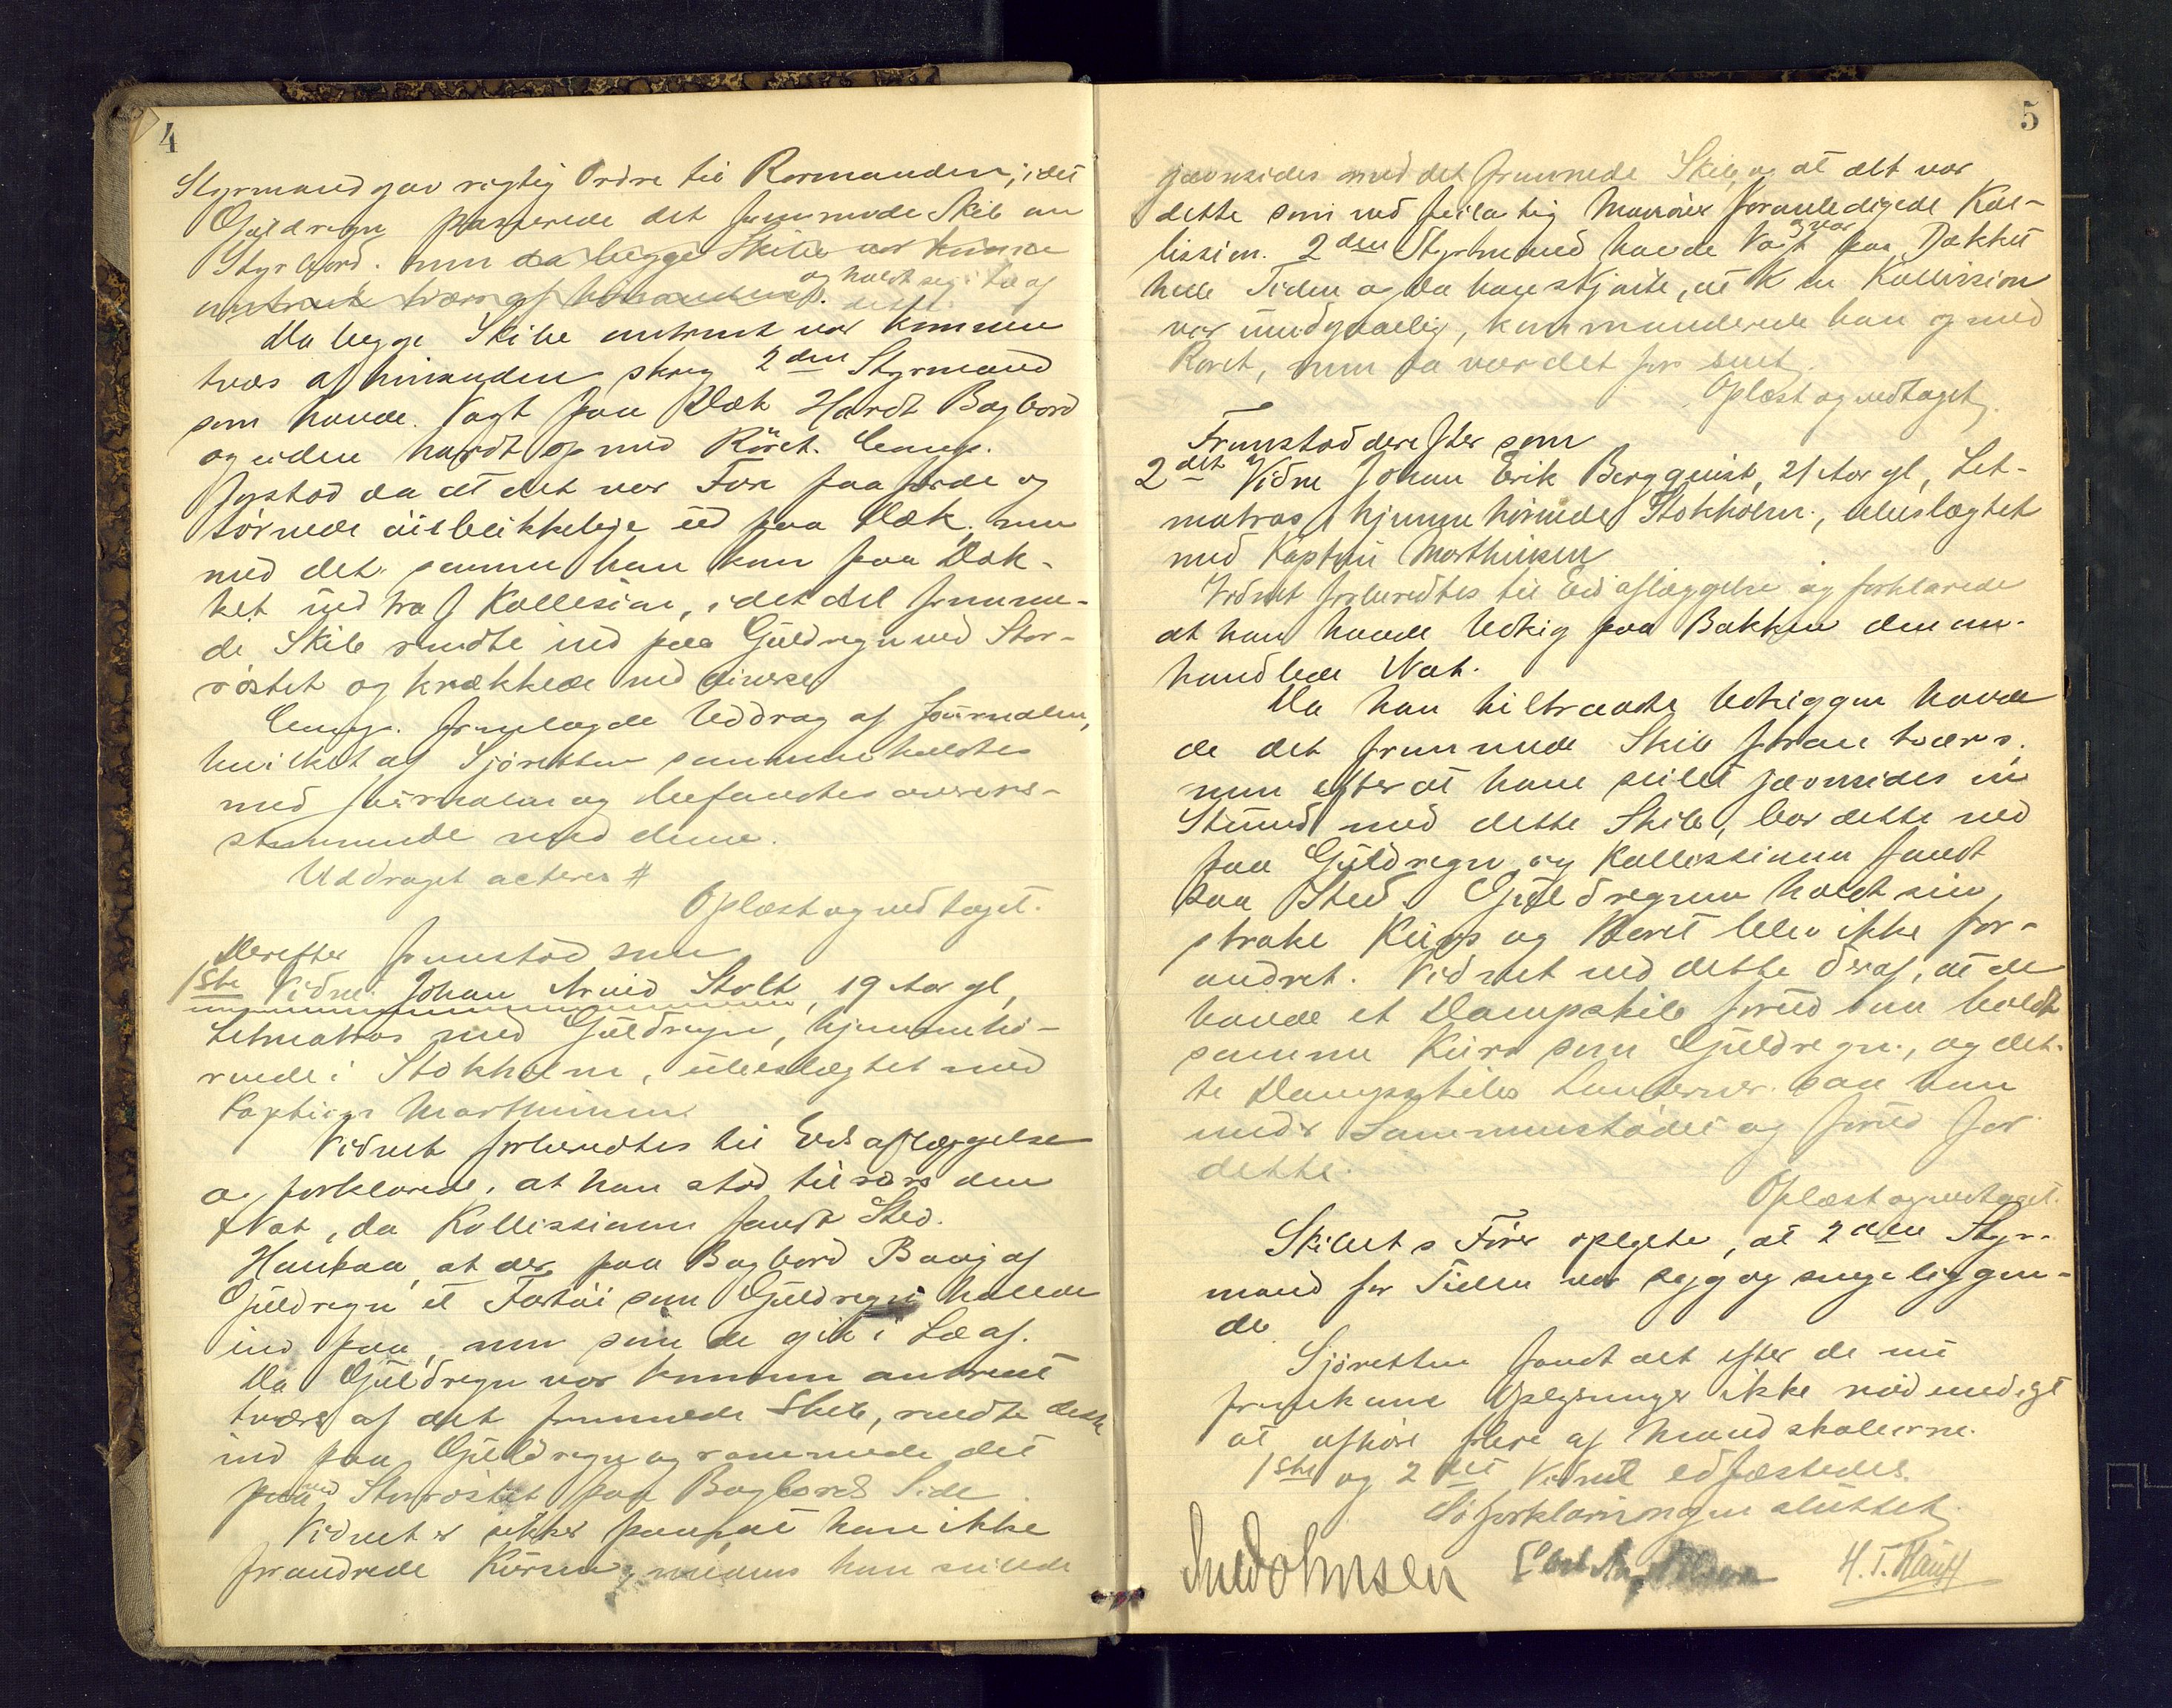 4
Styrmand gav rigtig Ordre til Rormanden, idet
Guldregn passerede det fremmede Skib om
Styrbord. men da begge Skibe var komne
omtrent tværs af hinanden og holdt sig i Læ af dette.
Da begge Skibe omtrent var kommen
tvers af hinanden skreg 2den Styrmand
som havde Vagt paa Dæk Hardt Bagbord
og siden hardt op med Roret. Comp.
forstod da at det var Fare paa færde og
törnede öieblikkelige ud paa Dæk, men
med det samme han kom paa Dæk-
ket indtraf Kollision, idet det fremme-
de Skib rendte ind paa Guldregn ved Stor-
röstet og krækkede med diverse
Comp. fremlagde Uddrag af Journalen,
hvilket af Sjöretten sammenholdtes
med Journalen og befandtes overens-
stemmende med denne.
Uddraget acteres #
Oplæst og vedtaget.
Derefter fremstod som
1ste Vidne Johan Arvid Stolt, 19 Aar gl,
Letmatros med Guldregn, hjemmehö-
rende i Stokholm, ubeslægtet med
Kaptein Marthinsen
Vidnet forberedtes til Eds aflæggelse
og forklarede, at han stod tilrors den
Nat, da Kollissionen fandt Sted.
Han saa, at der paa Bagbord Boug af
Guldregn et Fartöi som Guldregn halede
ind paa, men som de gik i Læ af.
Da Guldregn var kommen omtrent
tværs af det fremmede Skib, rendte dette
ind paa Guldregn og rammede det
ved Storröstet paa Bagbords Side.
Vidnet er sikker paa, at han ikke
forandrede Kursen, medens han seilede
5
jævnsides med det fremmede Skib, og at det var
dette som ved feilagtig Manöver foranledigede Kol-
lission. 2den Styrmand havde Vagt og var paa Dækket
hele Tiden og da han skjönte, at K en Kollission
var uundgaaelig, kommanderede han op med
Roret, men da var det for sent.
Oplæst og vedtaget.
Fremstod derefter som
2det Vidne Johan Erik Bergquist, 21 Aar gl, Let-
matros, hjemmehörende Stokholm, ubeslægtet
med Kaptein Marthinsen
Vidnet forberedtes til Eds aflæggelse og forklarede
at han havde Udkig paa Bakken den om-
handlede Nat.
Da han tiltraadte Udkiggen havde
de det fremmede Skib foran tværs,
men efter at have seilet jævnsides en
Stund med dette Skib, bar dette ned
paa Guldregn og Kollissionen fandt
saa Sted. Guldregn holdt sin
strake Kurs og Roret blev ikke for-
andret. Vidnet ved dette deraf, at de
havde et Dampskib forud som holdt
samme Kurs som Guldregn, og det-
te Dampskibs Lanterner saa han
under Sammenstödet og forud for
dette.
Oplæst og vedtaget.
Skibets Förer oplyste, at 2den Styr-
mand for Tiden var syg og sengeliggen-
de
Sjöretten fandt det efter de nu
fremkomne Oplysninger ikke nödvendigt
at afhöre flere af Mandskaberne.
1ste og 2det Vidne edfæstedes.
Söforklaringen sluttet.
H. T. Hauff